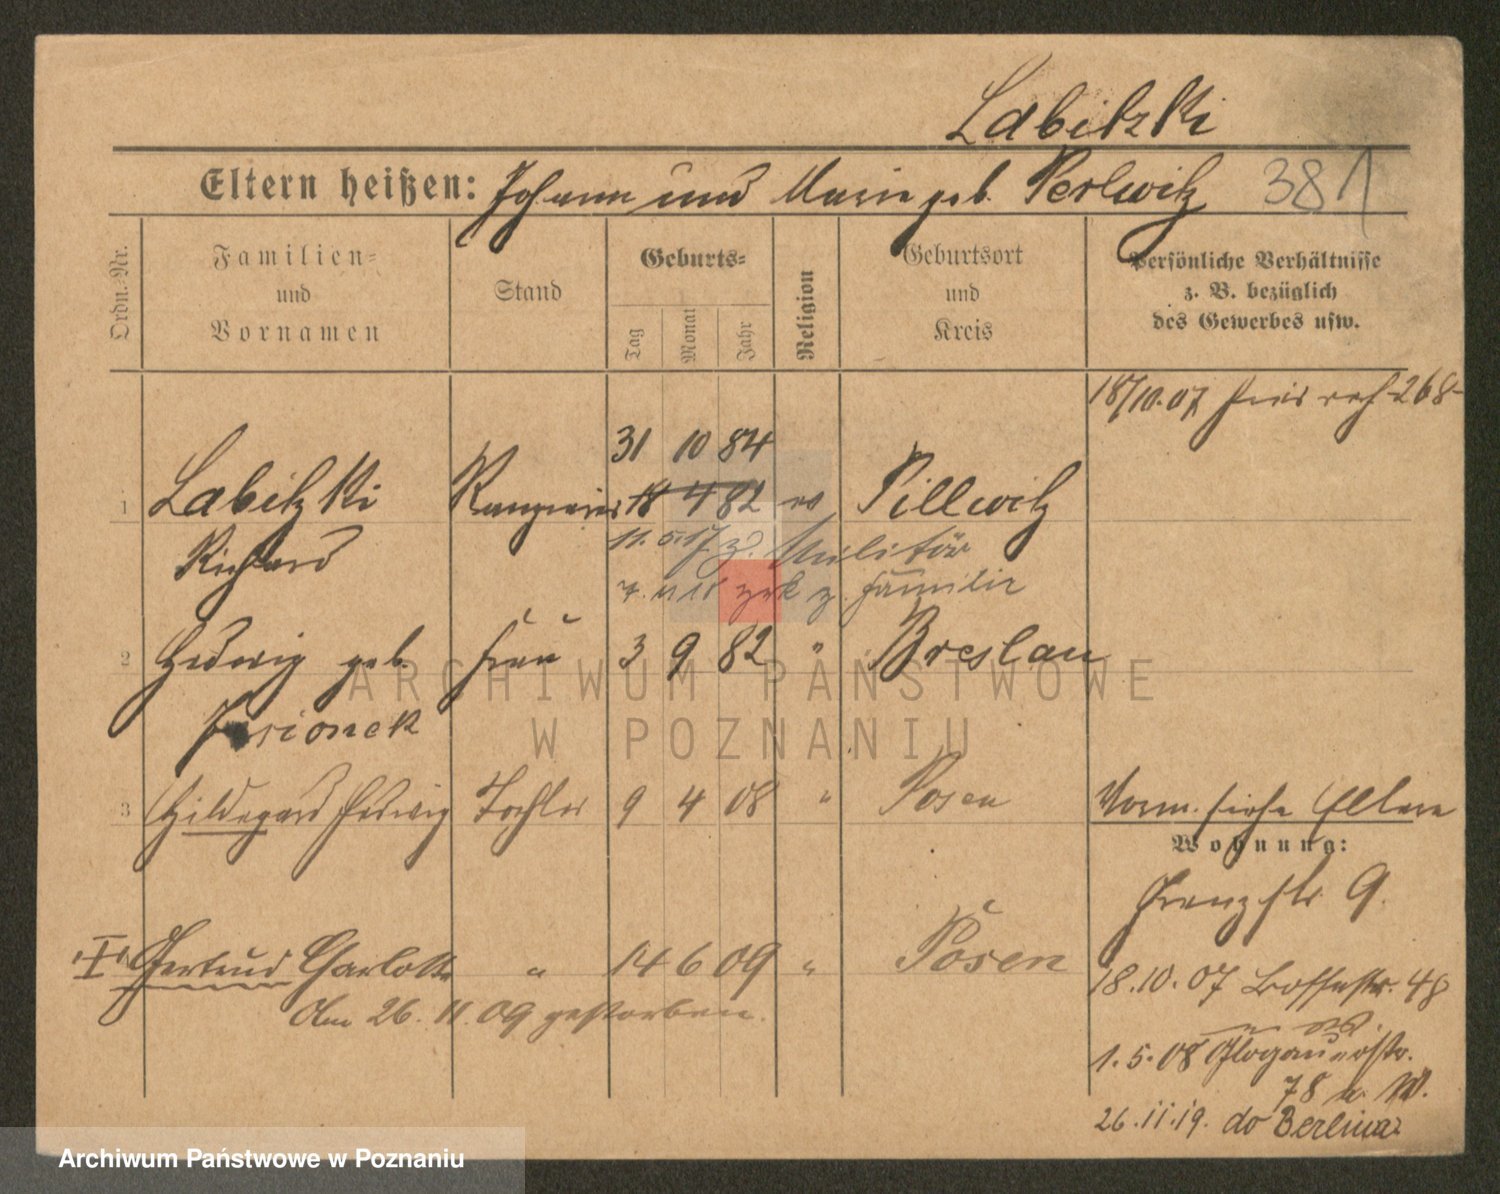 Labitzki
Eltern heißen: Johann und Marie geb. Perlwitz 381
Ordn.-Nr.
Familien- und Vornamen
Stand
Geburts-
Tag Monat Jahr
Religion
Geburtsort und Kreis
Persönliche Verhältnisse
z. B. bezüglich
des Gewerbes usw.
18/10.07 268
31 10 84
1 Labitzki 18 4 82 Pillwitz
Richard
11.5.17 z. Militär
z. Familie
2 Hedwig geb. Frau 3 9 82 " Breslau
ARCHIWUM PAŃSTWOWE
W POZNANIU
3 Hildegard Hedwig Tochter 9 4 08 " Posen Vorm. siehe Eltern
Wohnung:
9.
Gertrud Charlotte " 14 6 09 " Posen
18.10.07 48
Am 26.11.09 gestorben.
1.5.08 Glogauerstr.
78
26.11.19. do Berlina
Archiwum Państwowe w Poznaniu